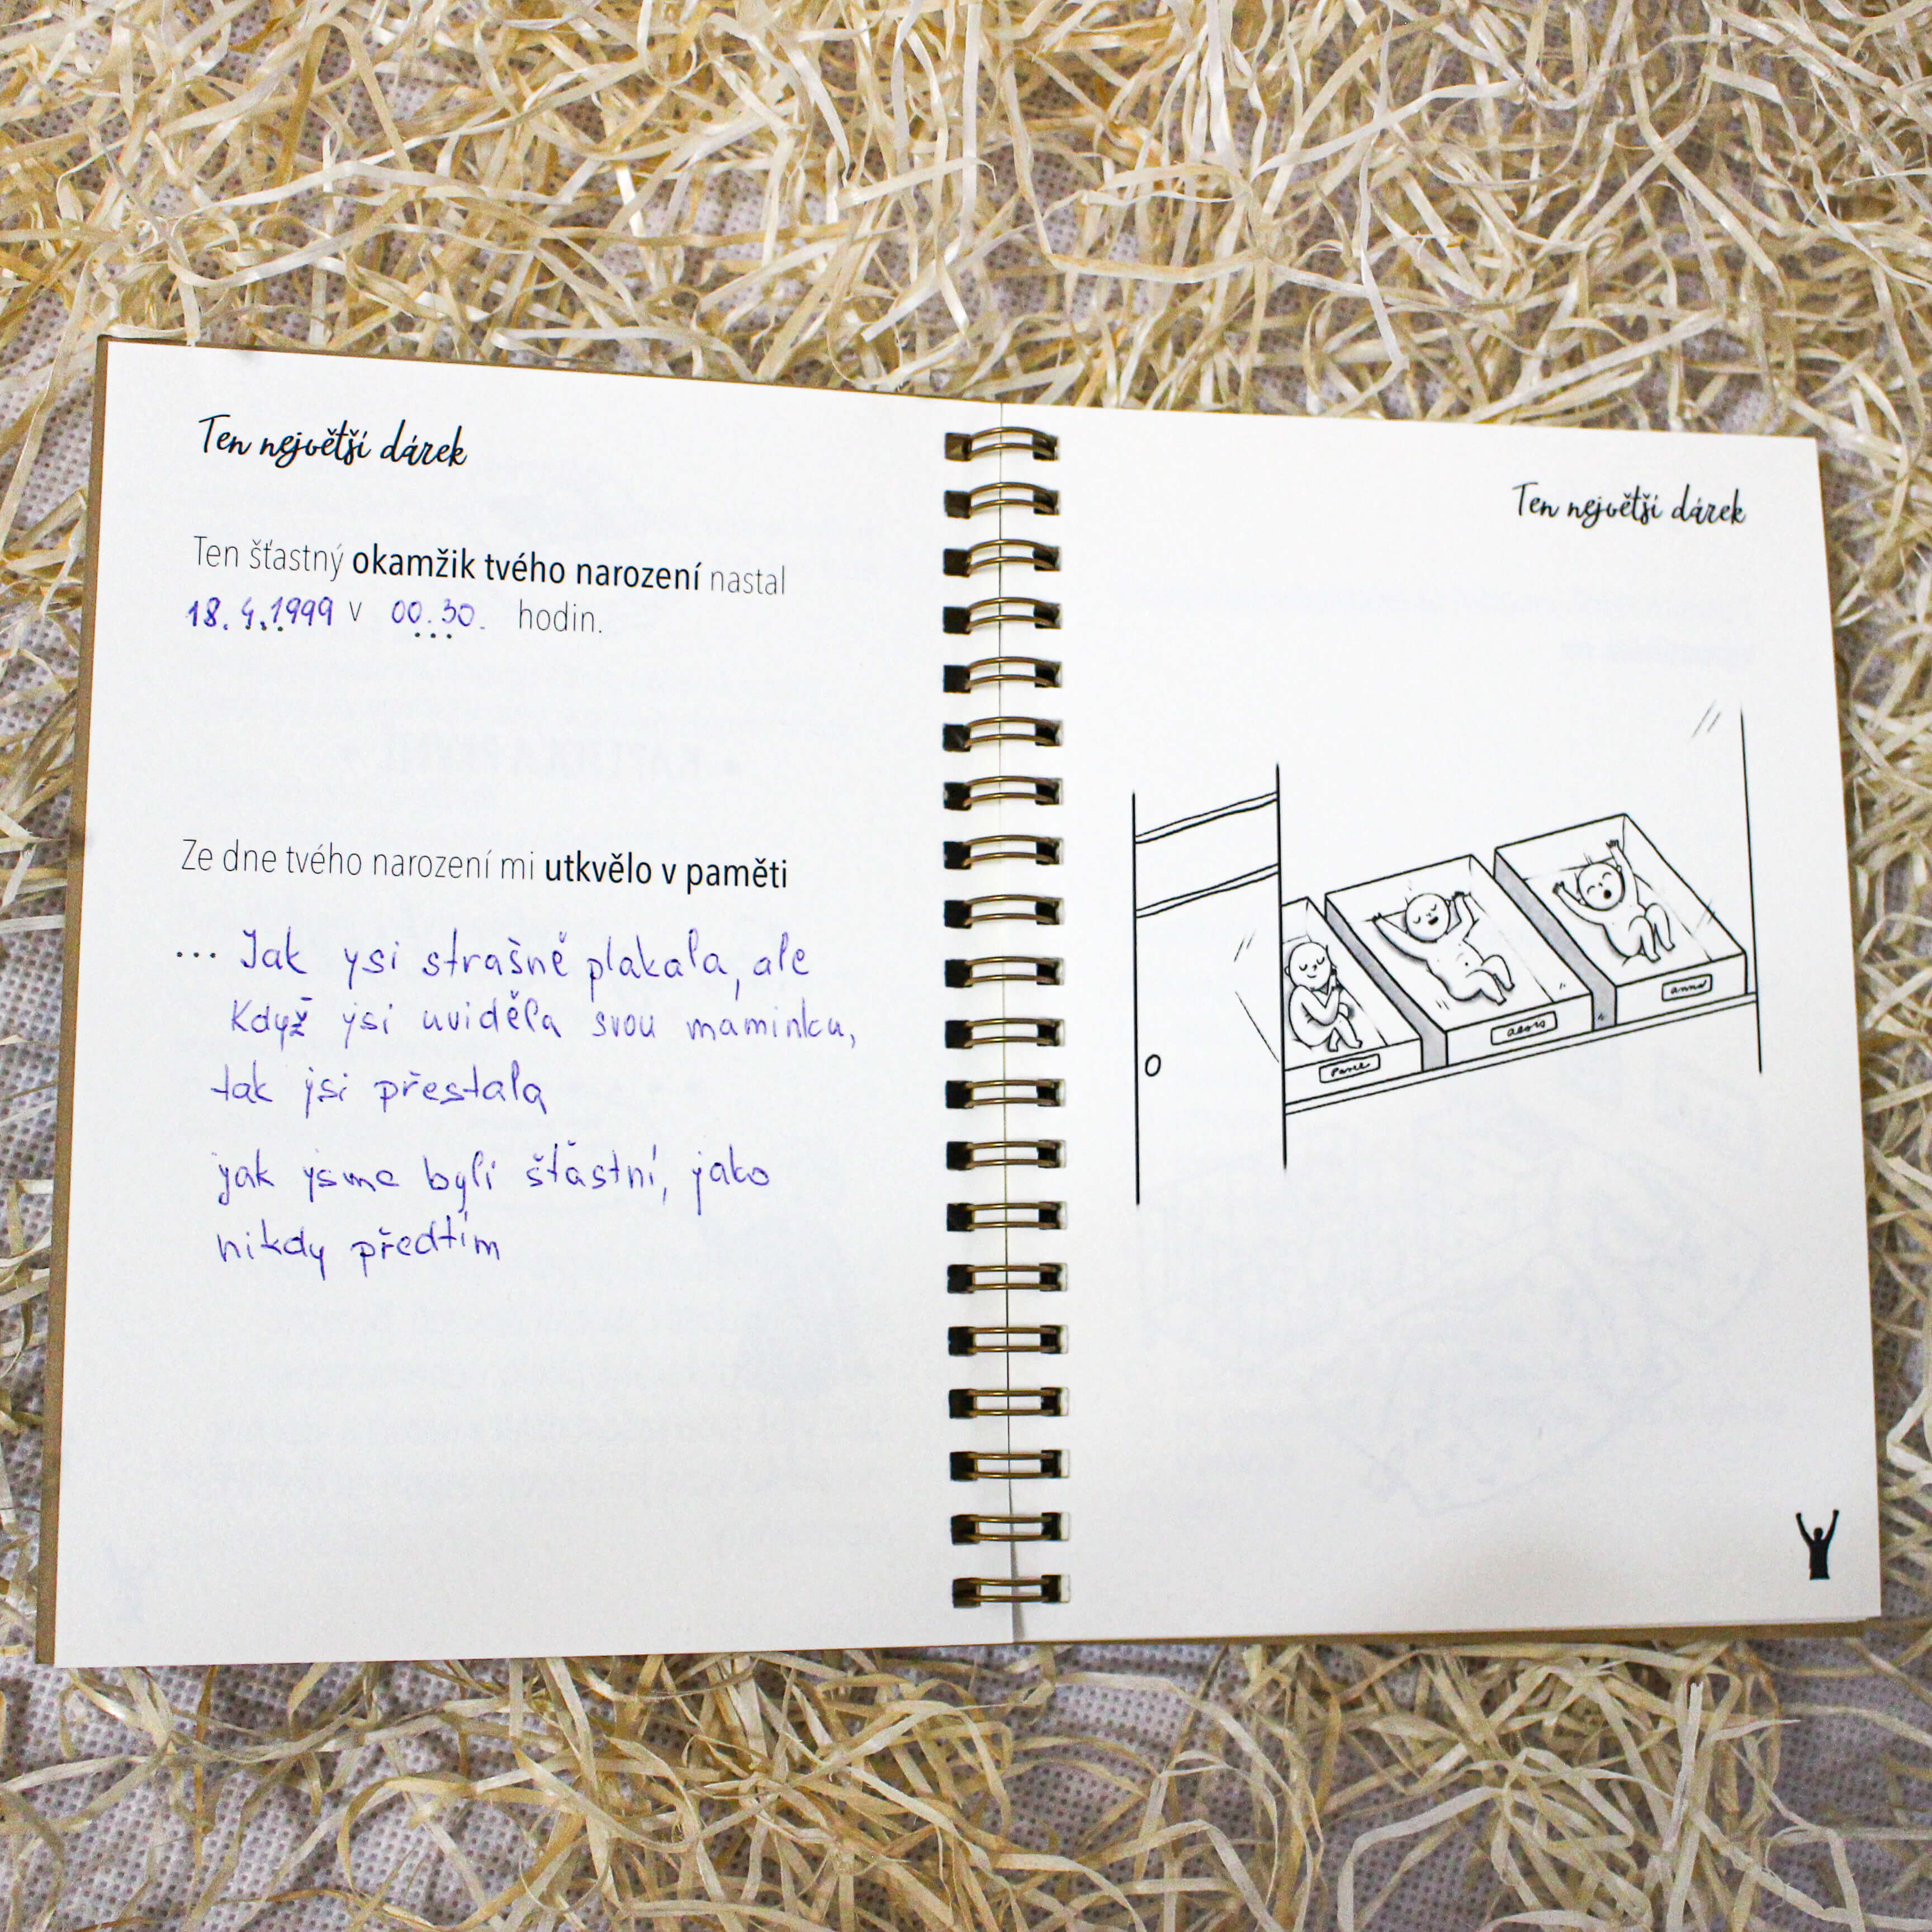 Ten největší dárek
Ten šťastný okamžik tvého narození nastal
18.4.1999 v 00.30. hodin.
Ze dne tvého narození mi utkvělo v paměti
... Jak jsi strašně plakala, ale
Když jsi uviděla svou maminku,
tak jsi přestala
jak jsme byli šťastní, jako
nikdy předtím
Ten největší dárek
alois